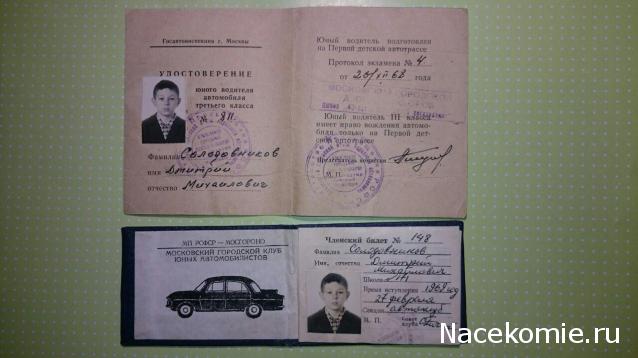 Госавтоинспекция г. Москвы
УДОСТОВЕРЕНИЕ
юного водителя
автомобиля
третьего класса
№ 811
Фамилия Солодовников
имя Дмитрий
отчество Михайлович
Юный водитель подготовлен
на Первой детской автотрассе
Протокол экзамена № 4
от года
Юный водитель III класса
имеет право вождения автомо-
биля только на Первой дет-
ской автотрассе
Председатель комиссии
М. П.
МП РСФСР — МОСГОРОНО
МОСКОВСКИЙ ГОРОДСКОЙ КЛУБ
ЮНЫХ АВТОМОБИЛИСТОВ
Членский билет № 148
Фамилия Солодовников
Имя, отчество Дмитрий
Михайлович
Школа №
Время вступления 1968 год
27 февраля
Секция автоклуб
М. П. Совет
клуба
Nacekomie.ru